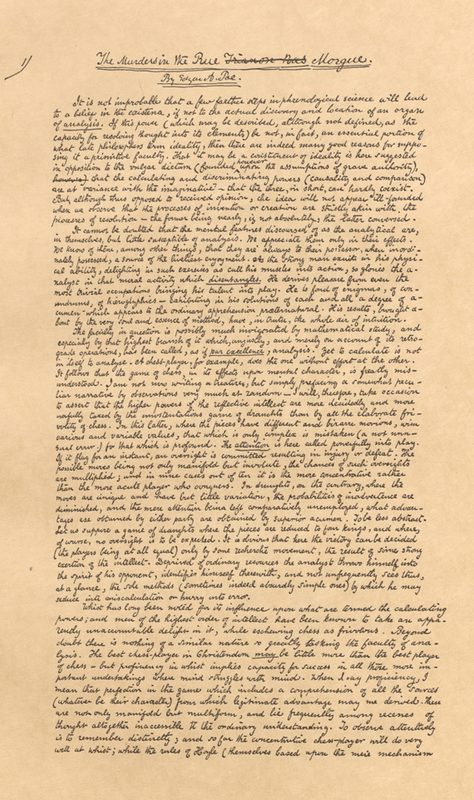 1)
The Murders in the Rue Trianon Bas Morgue.
By Edgar A. Poe.
It is not improbable that a few farther steps in phrenological science will lead
to a belief in the existence, if not to the actual discovery and location of an organ
of analysis. If this power (which may be described, although not defined, as the
capacity for resolving thought into its elements) be not, in fact, an essential portion of
what late philosophers term ideality, then there are indeed many good reasons for suppo-
sing it a primitive faculty. That it may be a constituent of ideality is here suggested
in opposition to the vulgar dictum (founded, however, upon the assumptions of grave authority),
that the calculating and discriminating powers (causality and comparison)
are at variance with the imaginative – that the three, in short, can hardly coexist.
But, although thus opposed to received opinion, the idea will not appear ill-founded
when we observe that the processes of invention or creation are strictly akin with the
processes of resolution – the former being nearly, if not absolutely, the latter conversed.
It cannot be doubted that the mental features discoursed of as the analytical are,
in themselves, but little susceptible of analysis. We appreciate them only in their effects.
We know of them, among other things, that they are always to their possessor, when inordi-
nately possessed, a source of the liveliest enjoyment. As the strong man exults in his physi-
cal ability, delighting in such exercises as call his muscles into action, so glories the a-
nalyst in that moral activity which disentangles. He derives pleasure from even the
most trivial occupations bringing his talent into play. He is fond of enigmas, of con-
undrums, of hieroglyphics – exhibiting in his solutions of each and all a degree of a-
cumen which appears to the ordinary apprehension præternatural. His results, brought a-
bout by the very soul and essence of method, have, in truth, the whole air of intuition.
The faculty in question is possibly much invigorated by mathematical study, and
especially by that highest branch of it which, unjustly, and merely on account of its retro-
grade operations, has been called, as if par excellence, analysis. Yet to calculate is not
in itself to analyse. A chess-player, for example, does the one without effort at the other.
It follows that the game of chess, in its effects upon mental character, is greatly mis-
understood. I am not now writing a treatise, but simply prefacing a somewhat pecu-
liar narrative by observations very much at random – I will, therefore, take occasion
to assert that the higher powers of the reflective intellect are more decidedly and more
usefully taxed by the unostentatious game of draughts than by all the elaborate fri-
volity of chess. In this latter, where the pieces have different and bizarre motions, with
various and variable values, that which is only complex is mistaken (a not unu-
sual error) for that which is profound. The attention is here called powerfully into play.
If it flag for an instant, an oversight is committed, resulting in injury or defeat. The
possible moves being not only manifold but involute, the chances of such oversights
are multiplied; and in nine cases out of ten it is the more concentrative rather
than the more acute player who conquers. In draughts, on the contrary, where the
moves are unique and have but little variation, the probabilities of inadvertence are
diminished, and the mere attention being left comparatively unemployed, what advan-
tages are obtained by either party are obtained by superior acumen. To be less abstract.
Let us suppose a game of draughts where the pieces are reduced to four kings, and where,
of course, no oversight is to be expected. It is obvious that here the victory can be decided
(the players being at all equal) only by some recherché movement, the result of some strong
exertion of the intellect. Deprived of ordinary resources the analyst throws himself into
the spirit of his opponent, identifies himself therewith, and not unfrequently sees thus,
at a glance, the sole methods (sometimes indeed absurdly simple ones) by which he may
seduce into miscalculation or hurry into error.
Whist has long been noted for its influence upon what are termed the calculating
powers; and men of the highest order of intellect have been known to take an appa-
rently unaccountable delight in it, while eschewing chess as frivolous. Beyond
doubt there is nothing of a similar nature so greatly tasking the faculty of ana-
lysis. The best chess-player in Christendom may be little more than the best player
of chess – but proficiency in whist implies capacity for success in all those more im-
portant undertakings where mind struggles with mind. When I say proficiency, I
mean that perfection in the game which includes a comprehension of all the sources
(whatever be their character) from which legitimate advantage may be derived. These
are not only manifold but multiform, and lie frequently among recesses of
thought altogether inaccessible to the ordinary understanding. To observe attentively
is to remember distinctly; and so far the concentrative chess-player will do very
well at whist; while the rules of Hoyle (themselves based upon the mere mechanism